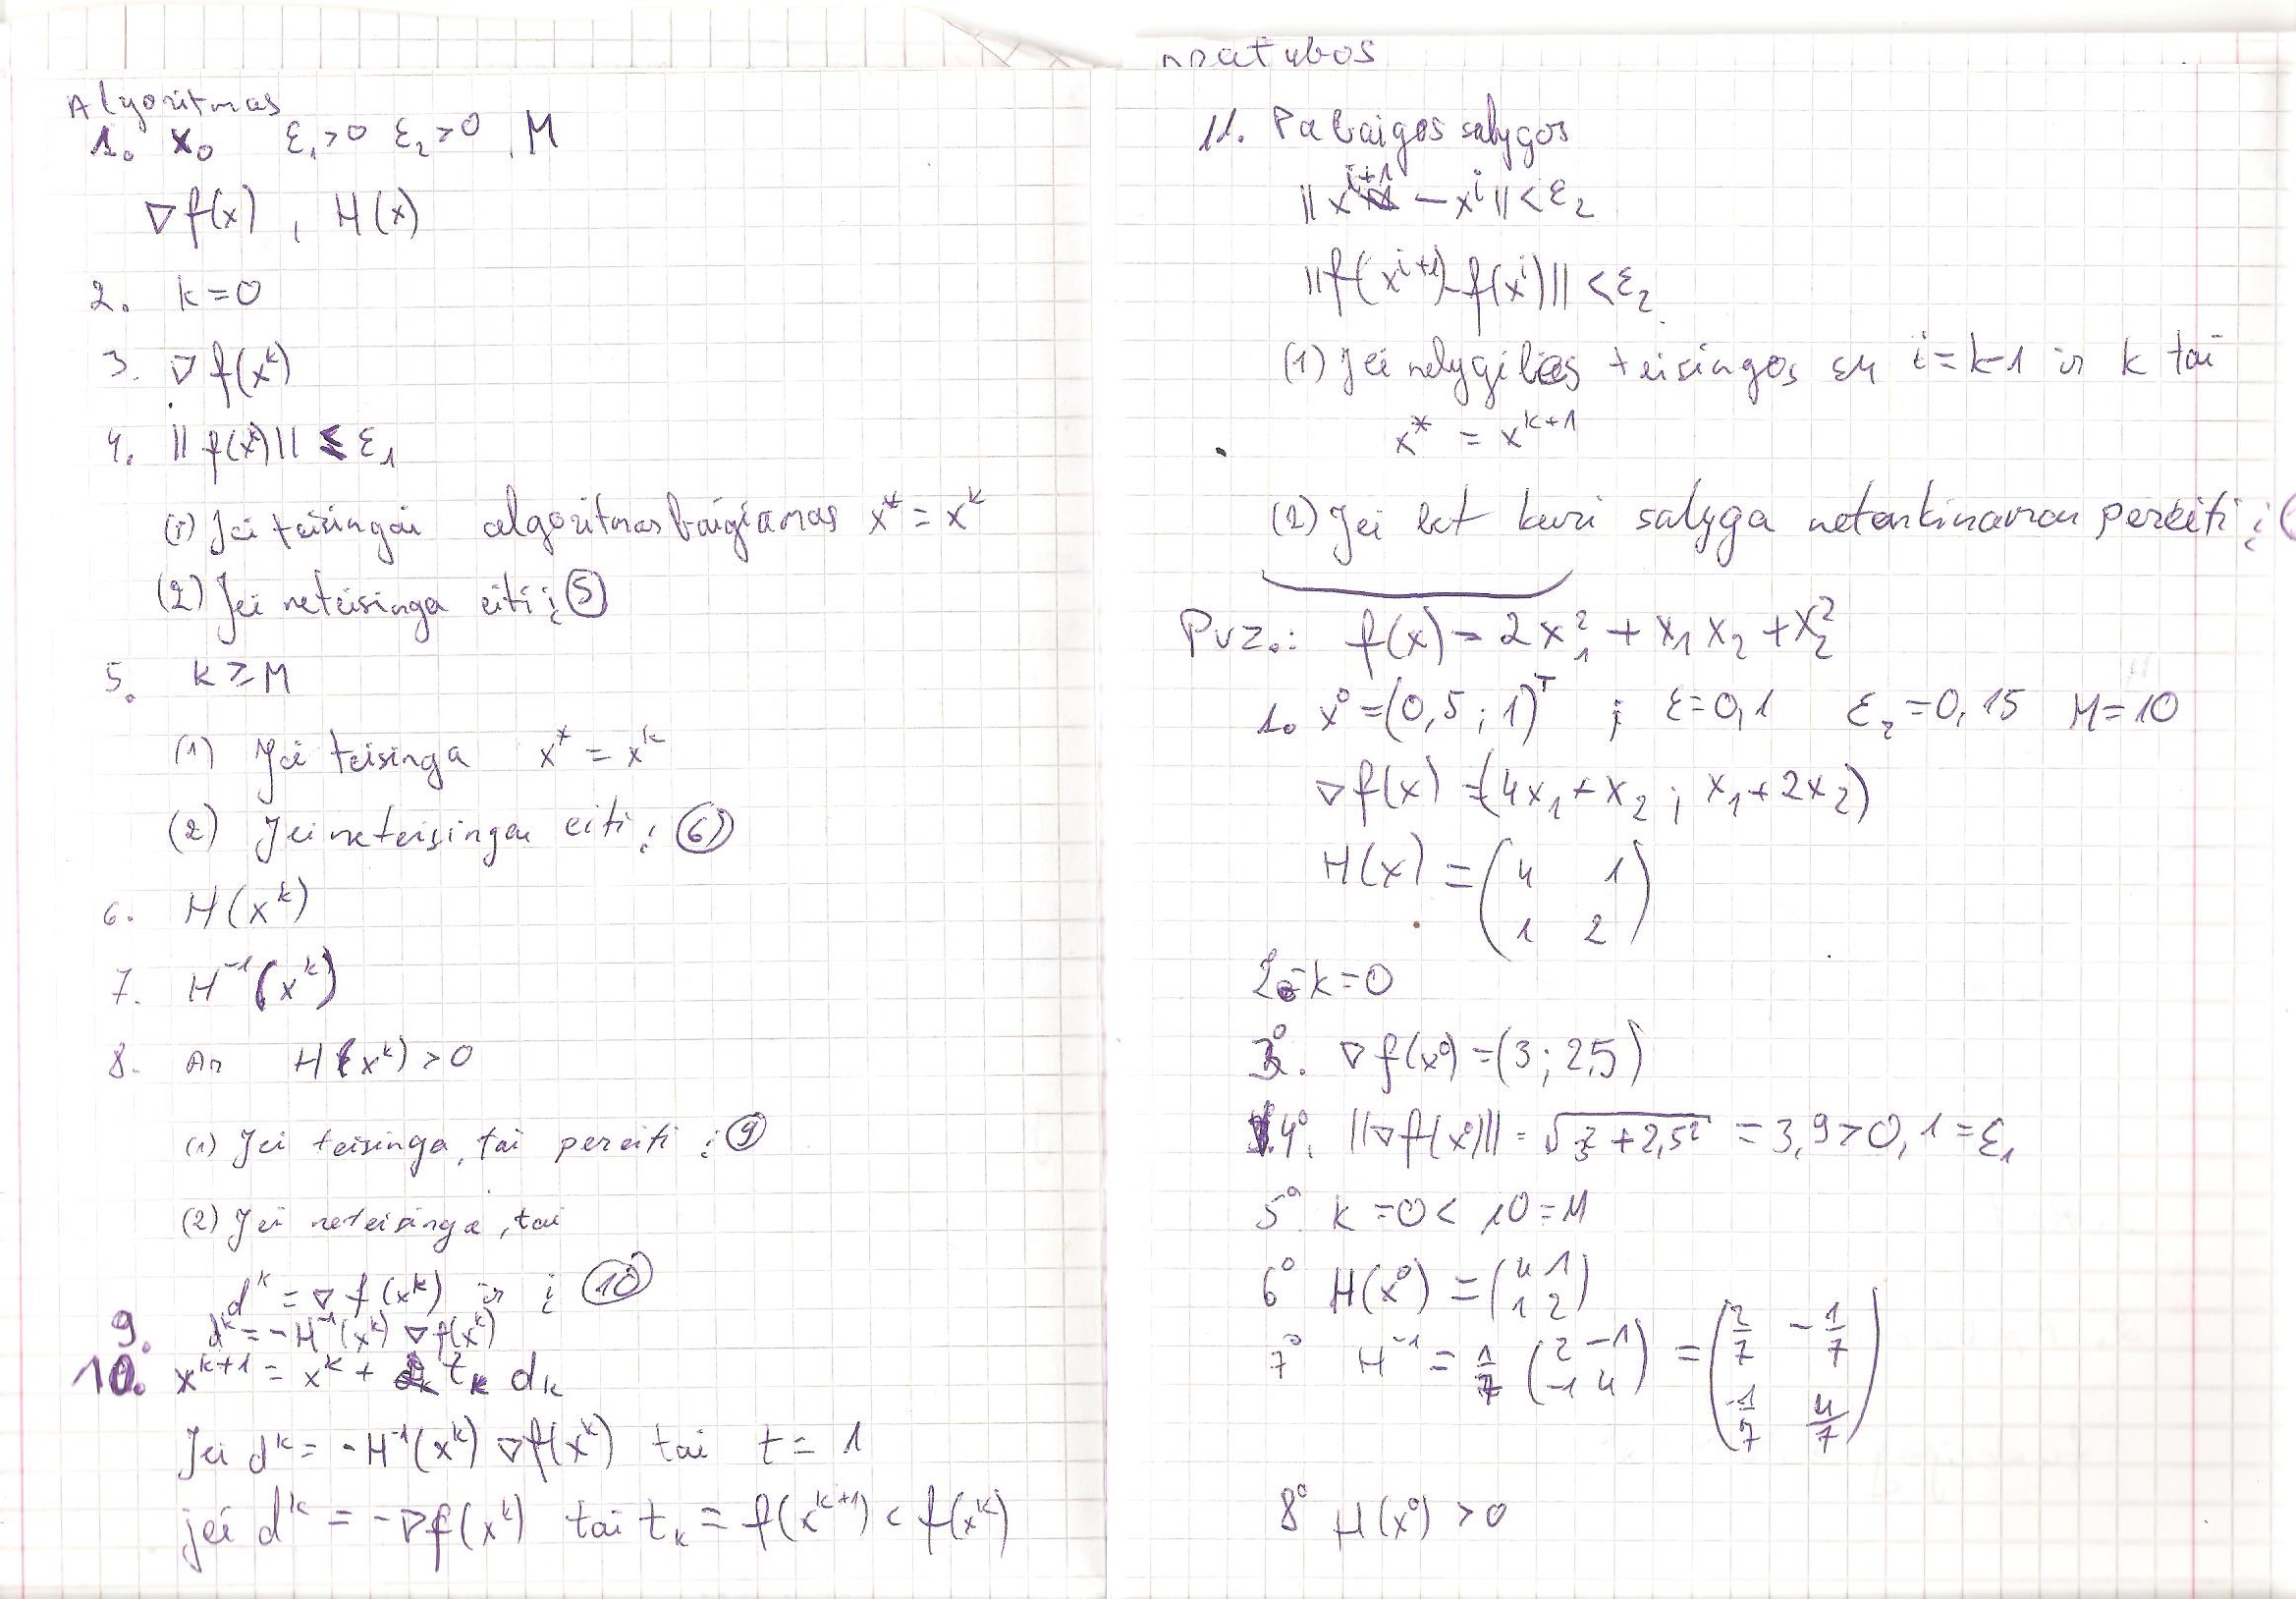 Algoritmas
1. x₀ ε₁>0 ε₂>0, M
∇f(x), H(x)
2. k=0
3. ∇f(xᵏ)
4. ||f(xᵏ)|| ≤ ε₁
(1) Jei teisingai algoritmas baigiamas x* = xᵏ
(2) Jei neteisinga eiti į ⑤
5. k ≥ M
(1) Jei teisinga x* = xᵏ
(2) Jei neteisinga eiti į ⑥
6. H(xᵏ)
7. H⁻¹(xᵏ)
8. Ar H(xᵏ) > 0
(1) Jei teisinga, tai pereiti į ⑨
(2) Jei neteisinga, tai
dᵏ = ∇f(xᵏ) ir į ⑩
9. dᵏ = -H⁻¹(xᵏ) ∇f(xᵏ)
10. xᵏ⁺¹ = xᵏ + tₖ dₖ
Jei dᵏ = -H⁻¹(xᵏ) ∇f(xᵏ) tai t = 1
jei dᵏ = -∇f(xᵏ) tai tₖ = f(xᵏ⁺¹) < f(xᵏ)
pratybos
11. Pabaigos salygos
||xⁱ⁺¹ - xⁱ|| < ε₂
||f(xⁱ⁺¹) - f(xⁱ)|| < ε₂
(1) Jei nelygibės teisingos su i = k-1 ir k tai
x* = xᵏ⁺¹
(2) Jei bet kuri salyga netenkinama pereiti į
Pvz.: f(x) = 2x₁² + x₁x₂ + x₂²
1. x⁰ = (0,5 ; 1)ᵀ ; ε = 0,1 ε₂ = 0,15 M = 10
∇f(x) = (4x₁ + x₂ ; x₁ + 2x₂)
H(x) = (4 1
1 2)
2. k = 0
3⁰. ∇f(x⁰) = (3 ; 2,5)
4⁰. ||∇f(x⁰)|| = √(3² + 2,5²) = 3,9 > 0,1 = ε₁
5⁰. k = 0 < 10 = M
6⁰ H(x⁰) = (4 1
1 2)
7⁰ H⁻¹ = 1/7 (2 -1
-1 4) = (2/7 -1/7
-1/7 4/7)
8⁰ H(x⁰) > 0